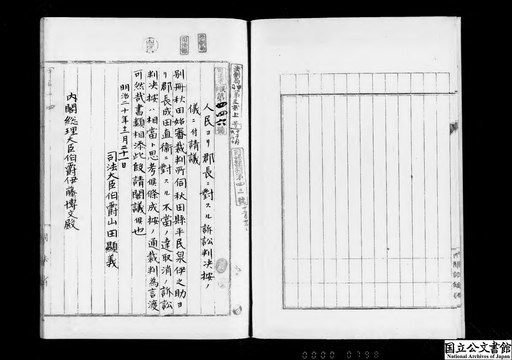 四四六
人民ヨリ郡長ニ對スル訴訟判決按ノ
儀ニ付請議
別冊秋田始審裁判所伺秋田縣平民泉伊之助ヨ
リ郡長成田直衞ニ對スル不當ノ達取消ノ訴訟
判决按ハ相當ト思考候條成按ノ通裁判為言渡
可然哉書類相添此段請閣議候也
明治二十年十二月二十一日
司法大臣伯爵山田顯義
內閣總理大臣伯爵伊藤博文殿
0000 0798
国立公文書館
National Archives of Japan